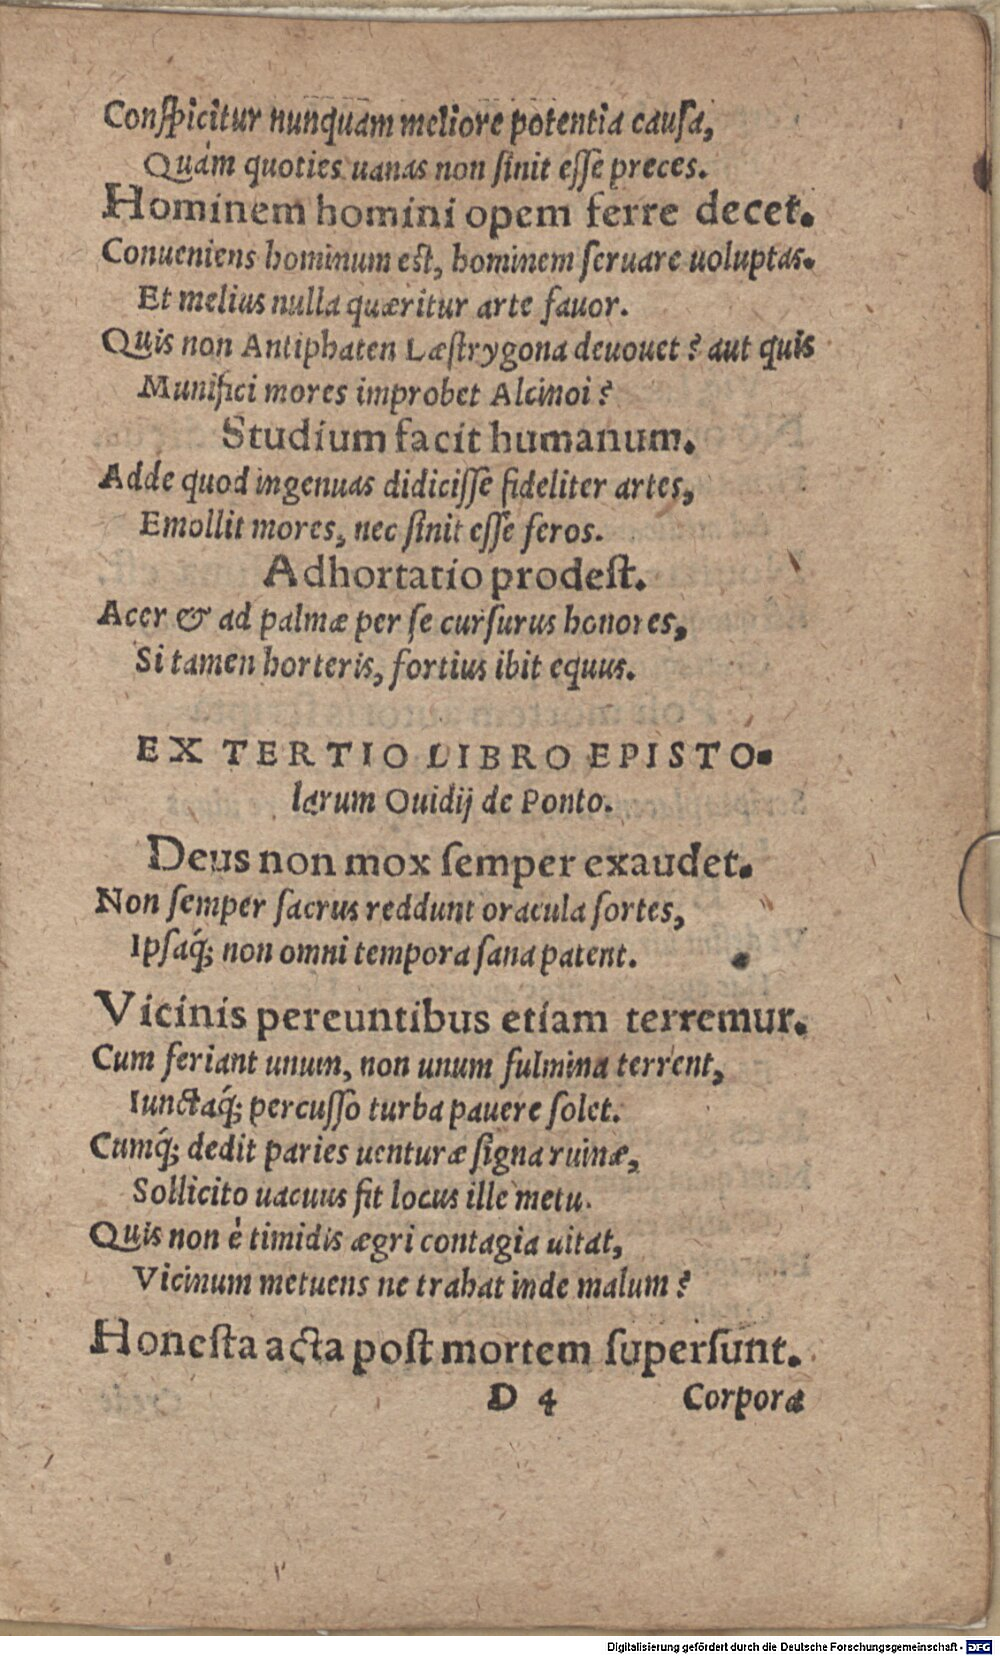 Conſpicitur nunquam meliore potentia cauſa,
Quám quoties uanas non ſinit eſſe preces.
Hominem homini opem ferre decet.
Conueniens hominum est, hominem ſeruare uoluptas.
Et melius nulla quæritur arte fauor.
Quis non Antiphaten Læſtrygona deuouet? aut quis
Munifici mores improbet Alcinoi?
Studium facit humanum.
Adde quod ingenuas didiciſſe fideliter artes,
Emollit mores, nec ſinit eſſe feros.
Adhortatio prodeſt.
Acer & ad palmæ per ſe curſurus honores,
Si tamen horteris, fortius ibit equus.
EX TERTIO LIBRO EPISTO-
larum Ouidij de Ponto.
Deus non mox ſemper exaudet.
Non ſemper ſacrus reddunt oracula ſortes,
Ipſaq́; non omni tempora ſana patent.
Vicinis pereuntibus etiam terremur.
Cum feriant unum, non unum fulmina terrent,
Iunctaq́; percuſſo turba pauere ſolet.
Cumq́; dedit paries uenturæ ſigna ruinæ,
Sollicito uacuus fit locus ille metu.
Quis non è timidis ægri contagia uitat,
Vicinum metuens ne trahat inde malum?
Honeſta acta poſt mortem ſuperſunt.
D 4 Corpora
Digitalisierung gefördert durch die Deutsche Forschungsgemeinschaft - DFG